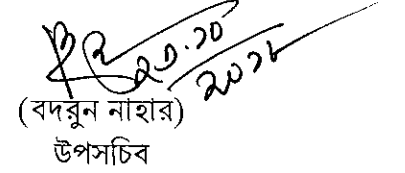 ২১.১০
২০১৮
(বদরুন নাহার)
উপসচিব